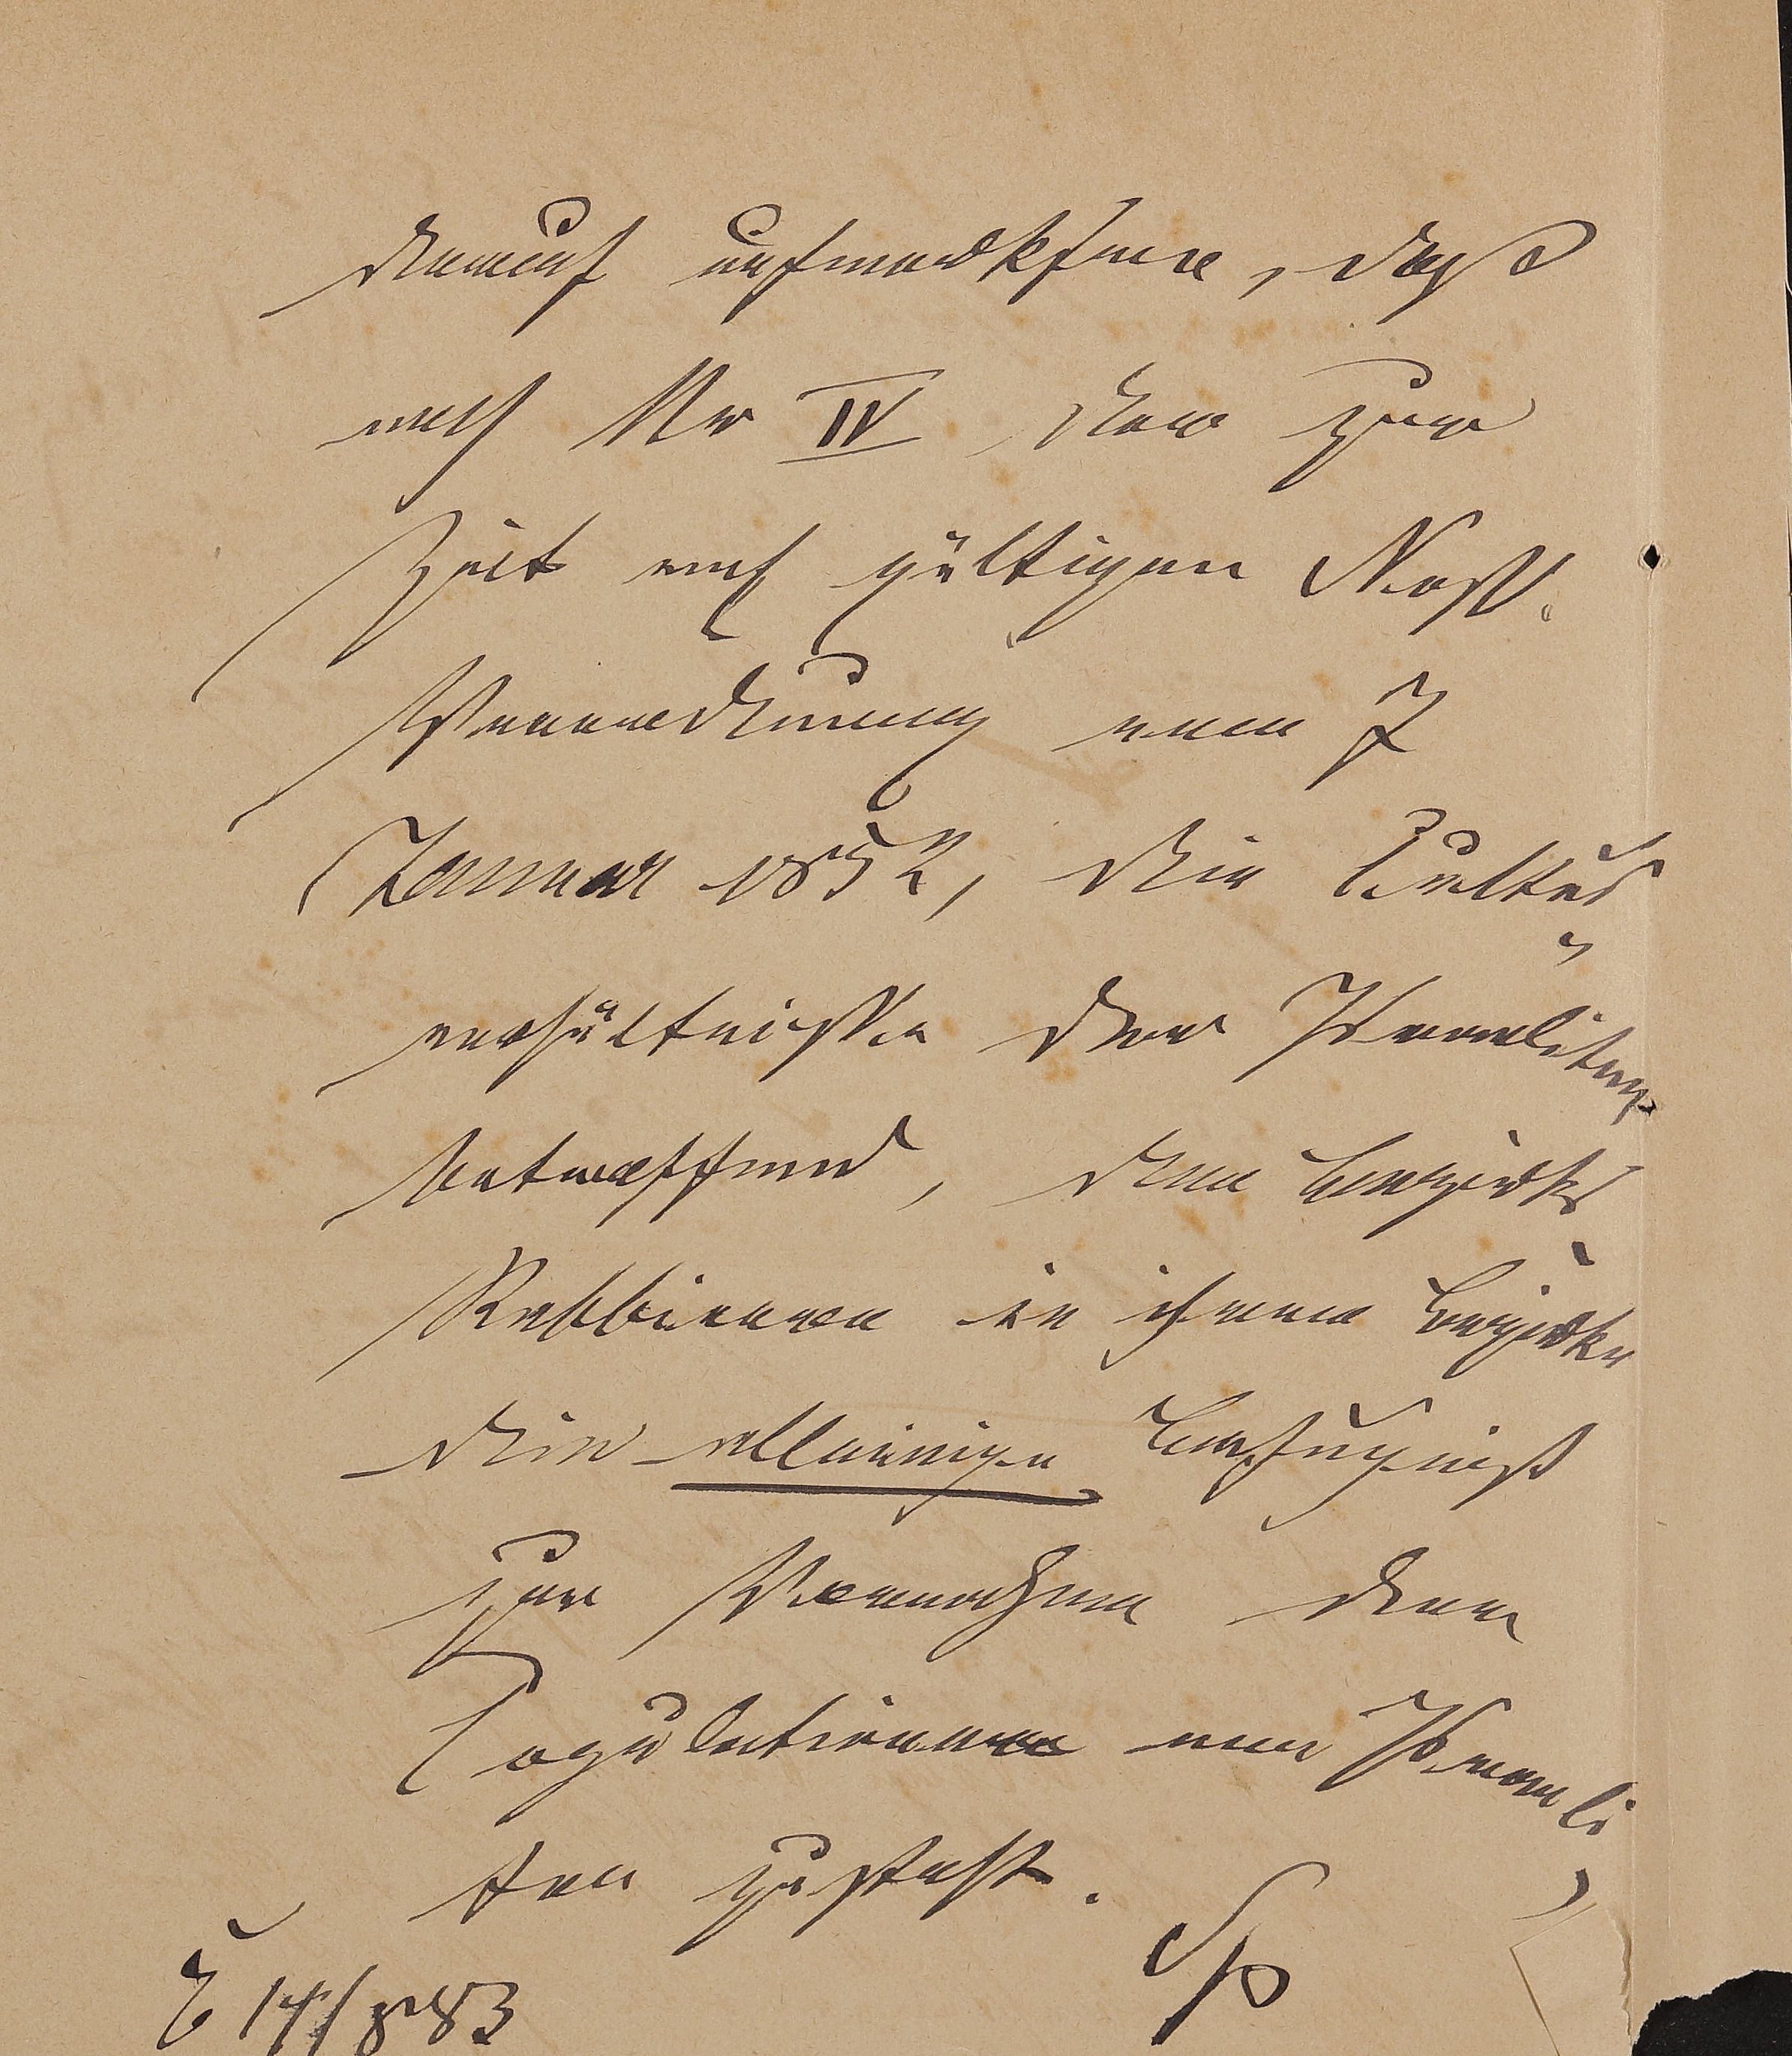 darauf aufmerksam, daß
nach No IV der zur
Zeit noch gültigen Allerh.
Verordnung vom 7
Januar 1852, die Cultus
verhältnisse der Israeliten
betreffend, den Bezirks
Rabbinern in ihrem Bezirke
die alleinige Befugniß
zur Vornahme der
Copulationen von Israeli
ten zusteht.
14/8 83